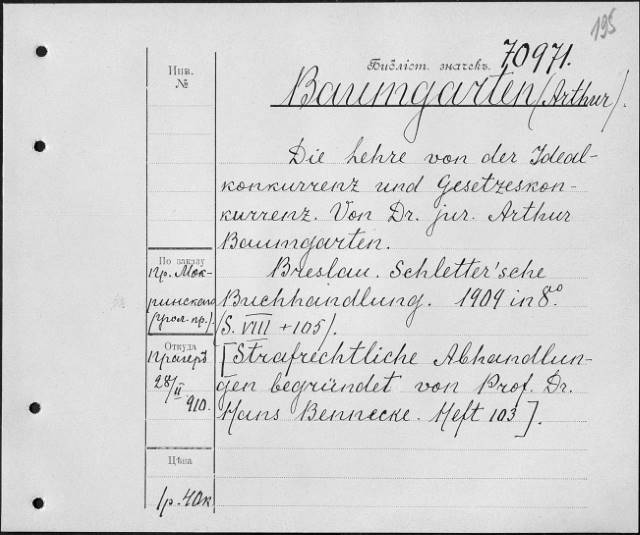 195
Инв.
№
Библіот. значекъ 70971.
Baumgarten (Arthur).
Die Lehre von der Ideal-
konkurrenz und Gesetzeskon-
kurrenz. Von Dr. jur. Arthur
Baumgarten.
Breslau. Schletter'sche
Buchhandlung. 1909 in 8º
(S. VIII + 105).
[Strafrechtliche Abhandlun-
gen begründet von Prof. Dr.
Hans Bennecke. Heft 103].
По заказу
пр. Мок-
ринскаго
(угол. пр.).
Откуда
Прагеръ
28/II
910.
Цѣна
1р. 40к